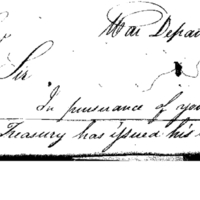 War Depar
Sir
In pursuance of you
Treasury has issued his